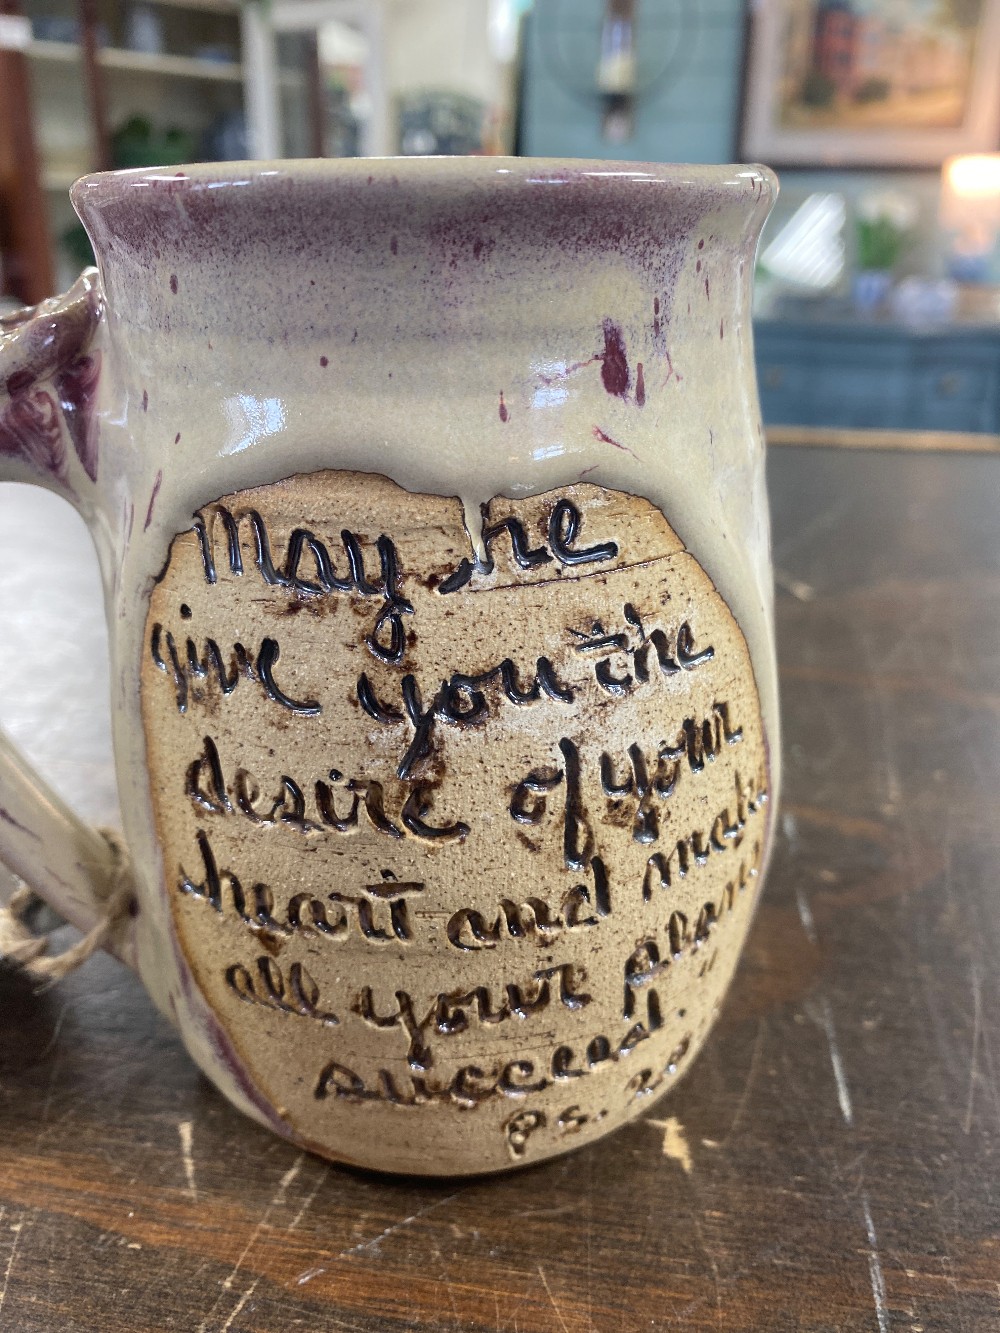 May he
give you the
desire of your
heart and make
all your plans
succeed."
Ps. 20